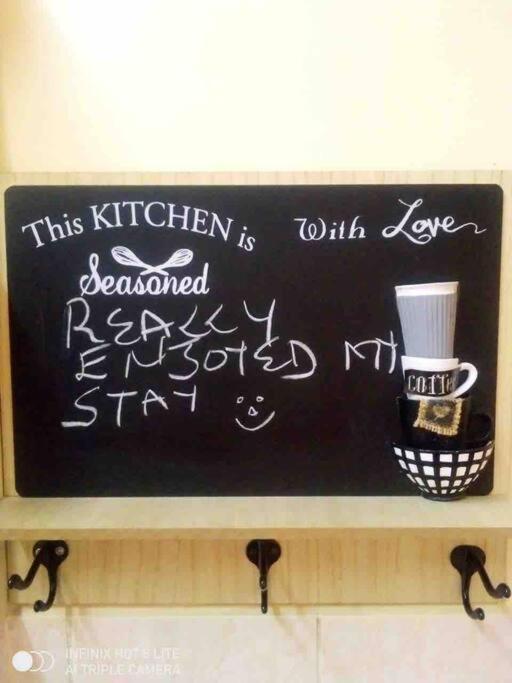 This KITCHEN is
Seasoned
With Love
REALLY
ENJOYED MY
STAY
COFFEE
INFINIX HOT 8 LITE
AI TRIPLE CAMERA